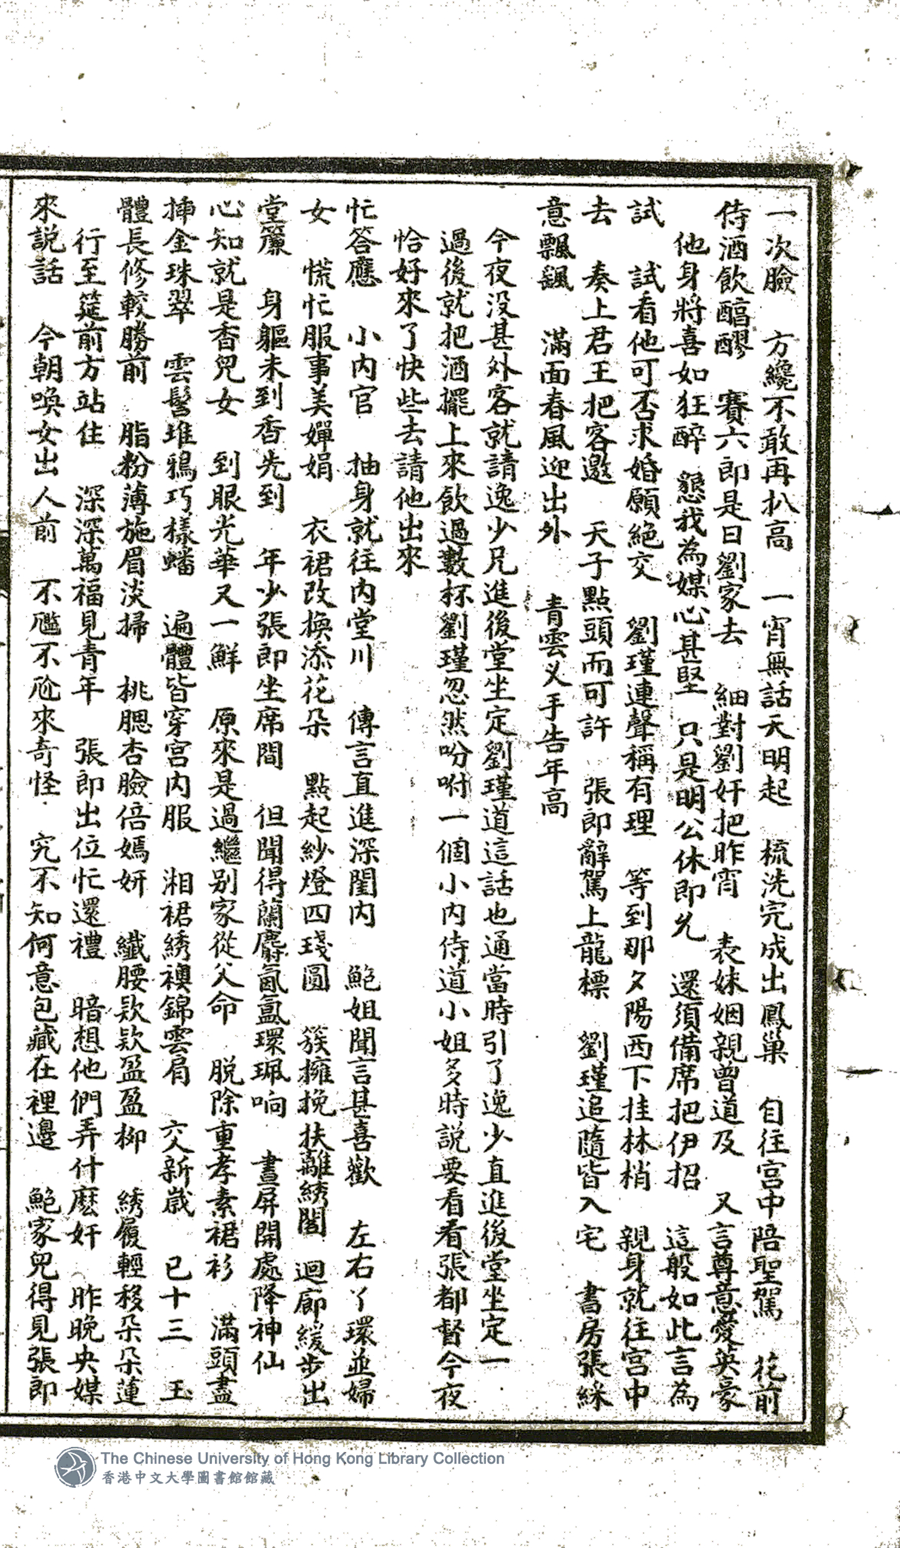 一次臉　方纔不敢再扒高　一宵無話天明起　梳洗完成出鳳巢　自往宮中陪聖駕　花前
侍酒飲醕醪　賽六即是日劉家去　細對劉奸把昨宵　表妹姻親曾道及　又言尊意愛英豪
他身將喜如狂醉　懇我為媒心甚堅　只是明公休即允　還須備席把伊招　這般如此言為
試　試看他可否求婚願絕交　劉瑾連聲稱有理　等到那夕陽西下挂林梢　親身就往宮中
去　奏上君王把客邀　天子點頭而可許　張即辭駕上龍標　劉瑾追隨皆入宅　書房張綵
意飄飄　滿面春風迎出外　青雲乂手告年高
今夜没甚外客就請逸少兄進後堂坐定劉瑾道這話也通當時引了逸少直進後堂坐定一
過後就把酒擺上來飲過數杯劉瑾忽然吩咐一個小内侍道小姐多時説要看看張都督今夜
恰好來了快些去請他出來
忙答應　小内官　抽身就往内堂川　傳言直進深閨内　鮑姐聞言甚喜歡　左右丫環並婦
女　慌忙服事美嬋娟　衣裙改換添花朵　點起紗燈四琖圓　簇擁挽扶離綉閣　迴廊緩步出
堂簾　身軀未到香先到　年少張即坐席間　但聞得蘭麝氤氳環珮响　畫屏開處降神仙
心知就是杏兒女　到眼光華又一鮮　原來是過繼别家從父命　脱除重孝素裙衫　滿頭盡
插金珠翠　雲髻堆鴉巧樣蟠　遍體皆穿宮内服　湘裙綉襖錦雲肩　交新歲　已十三　玉
體長修較勝前　脂粉薄施眉淡掃　桃腮杏臉倍嫣妍　纖腰欵欵盈盈柳　綉履輕移朵朵蓮
行至筵前方站住　深深萬福見青年　張即出位忙還禮　暗想他們弄什麽奸　昨晚央媒
來説話　今朝喚女出人前　不尶不尬來奇怪　究不知何意包藏在裡邊　鮑家兒得見張即
The Chinese University of Hong Kong Library Collection
香港中文大學圖書館館藏